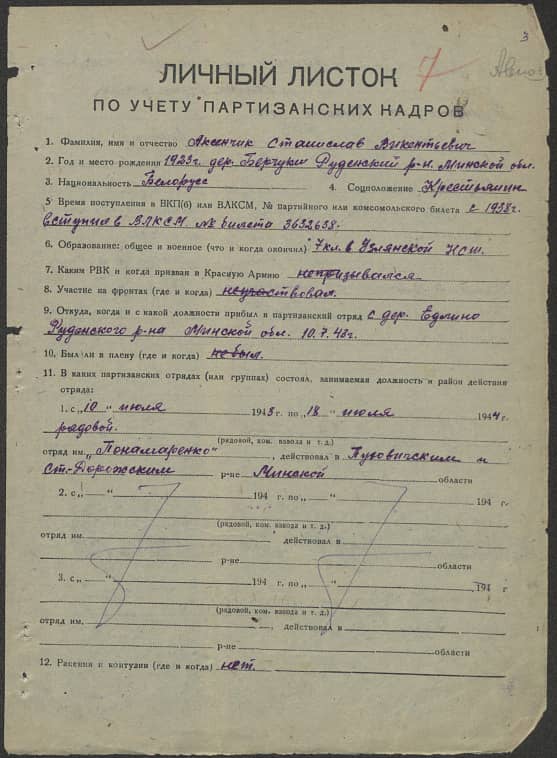 3
7
ЛИЧНЫЙ ЛИСТОК
ПО УЧЕТУ ПАРТИЗАНСКИХ КАДРОВ
1. Фамилия, имя и отчество Аксенчик Станислав Викентьевич
2. Год и место рождения 1923г. дер. Берчуки Руденский р-н. Минской обл.
3. Национальность Белорусс 4. Соцположение Крестьянин
5 Время поступления в ВКП(б) или ВЛКСМ, № партийного или комсомольского билета с 1938г.
вступил в ВЛКСМ. № билета 3632638.
6. Образование: общее и военное (что и когда окончил) 7кл. в Узлянской НСШ.
7. Каким РВК и когда призван в Красную Армию непризывался
8. Участие на фронтах (где и когда) неучаствовал.
9. Откуда, когда и с какой должности прибыл в партизанский отряд с дер. Едлино
Руденского р-на Минской обл. 10.7.43г.
10. Был ли в плену (где и когда) небыл.
11. В каких партизанских отрядах (или группах) состоял, занимаемая должность и район действия
отряда:
1. с „10 “ июля 1943 г. по „18 “ июля 1944 г.
рядовой.
(рядовой, ком. взвода и т. д.)
отряд им. „Понамаренко“ , действовал в Пуховичским и
Ст-Дорожским р-не Минской области
2. с „ “ 194 г. по „ “ 194 г.
(рядовой, ком. взвода и т. д.)
отряд им. действовал в
р-не области
3. с „ “ 194 г. по „ “ 194 г
(рядовой, ком. взвода и т. д.)
отряд им. , действовал в
р-не области
12. Ранения и контузии (где и когда) нет.